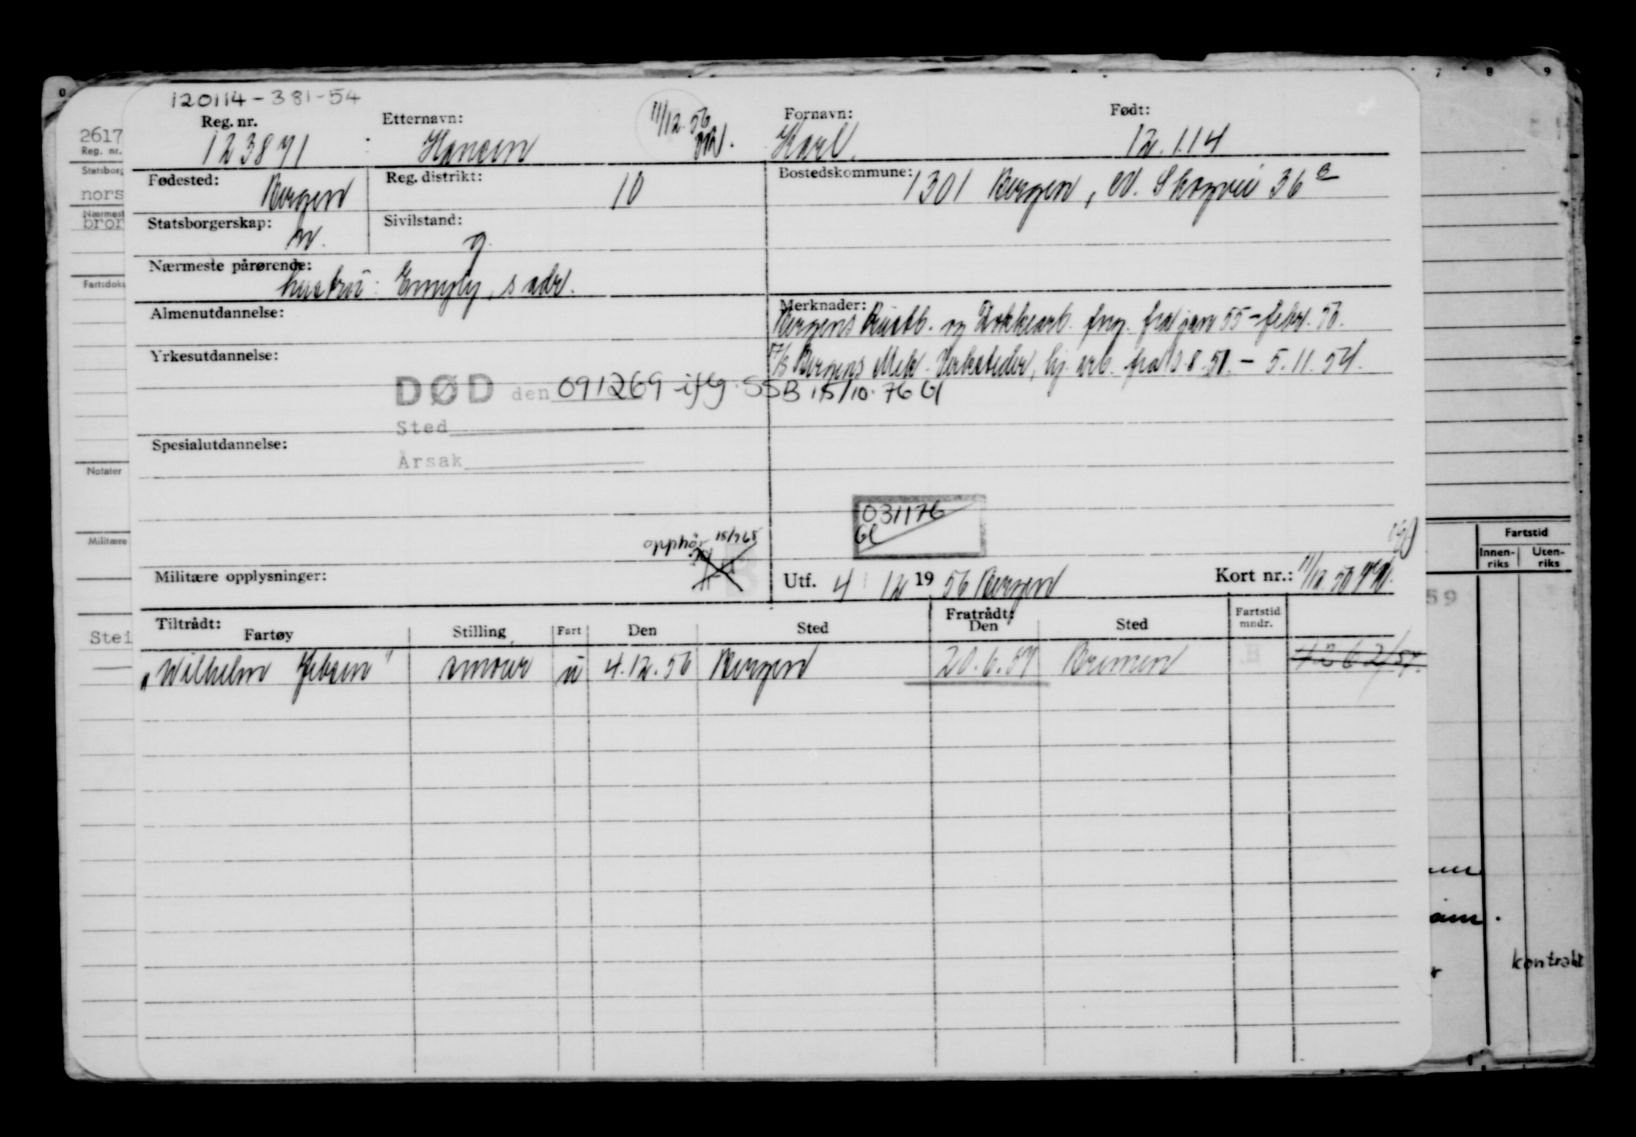 120114-381-54
Reg. nr. Etternavn: 11/12.56 Fornavn: Født:
123891 Hansen Karl. 12.1.14
Fødested: Bergen Reg. distrikt: 10 Bostedskommune: 1301 Bergen, Skogvei 36
Statsborgerskap: n. Sivilstand: g.
Nærmeste pårørende:
hustru: s adr.
Almenutdannelse: Merknader:
Bergens og Dokkearb. fra jan 55 - febr. 56.
Yrkesutdannelse: Bergens Mek. Verksteder, hj. arb. fra - 5.11.54.
DØD den 091269 ifg. SSB 15/10.76 Gl
Sted
Spesialutdannelse:
Årsak
031176
Gl
opphør
Militære opplysninger: Utf. 4 12 19 56 Bergen Kort nr.: 11/12.56
Tiltrådt: Fratrådt: Fartstid
Fartøy Stilling Fart Den Sted Den Sted mndr.
"Wilhelm Jebsen" smører u 4.12.56 Bergen 20.6.57 Bremen 4262/57.
2617
Reg. nr.
Statsborg
nors
Nærmest
bror
Fartsdoku
Notater
Militære
Stei
7 8 9
Fartstid
Innen-riks Uten-riks
59
kontrakt